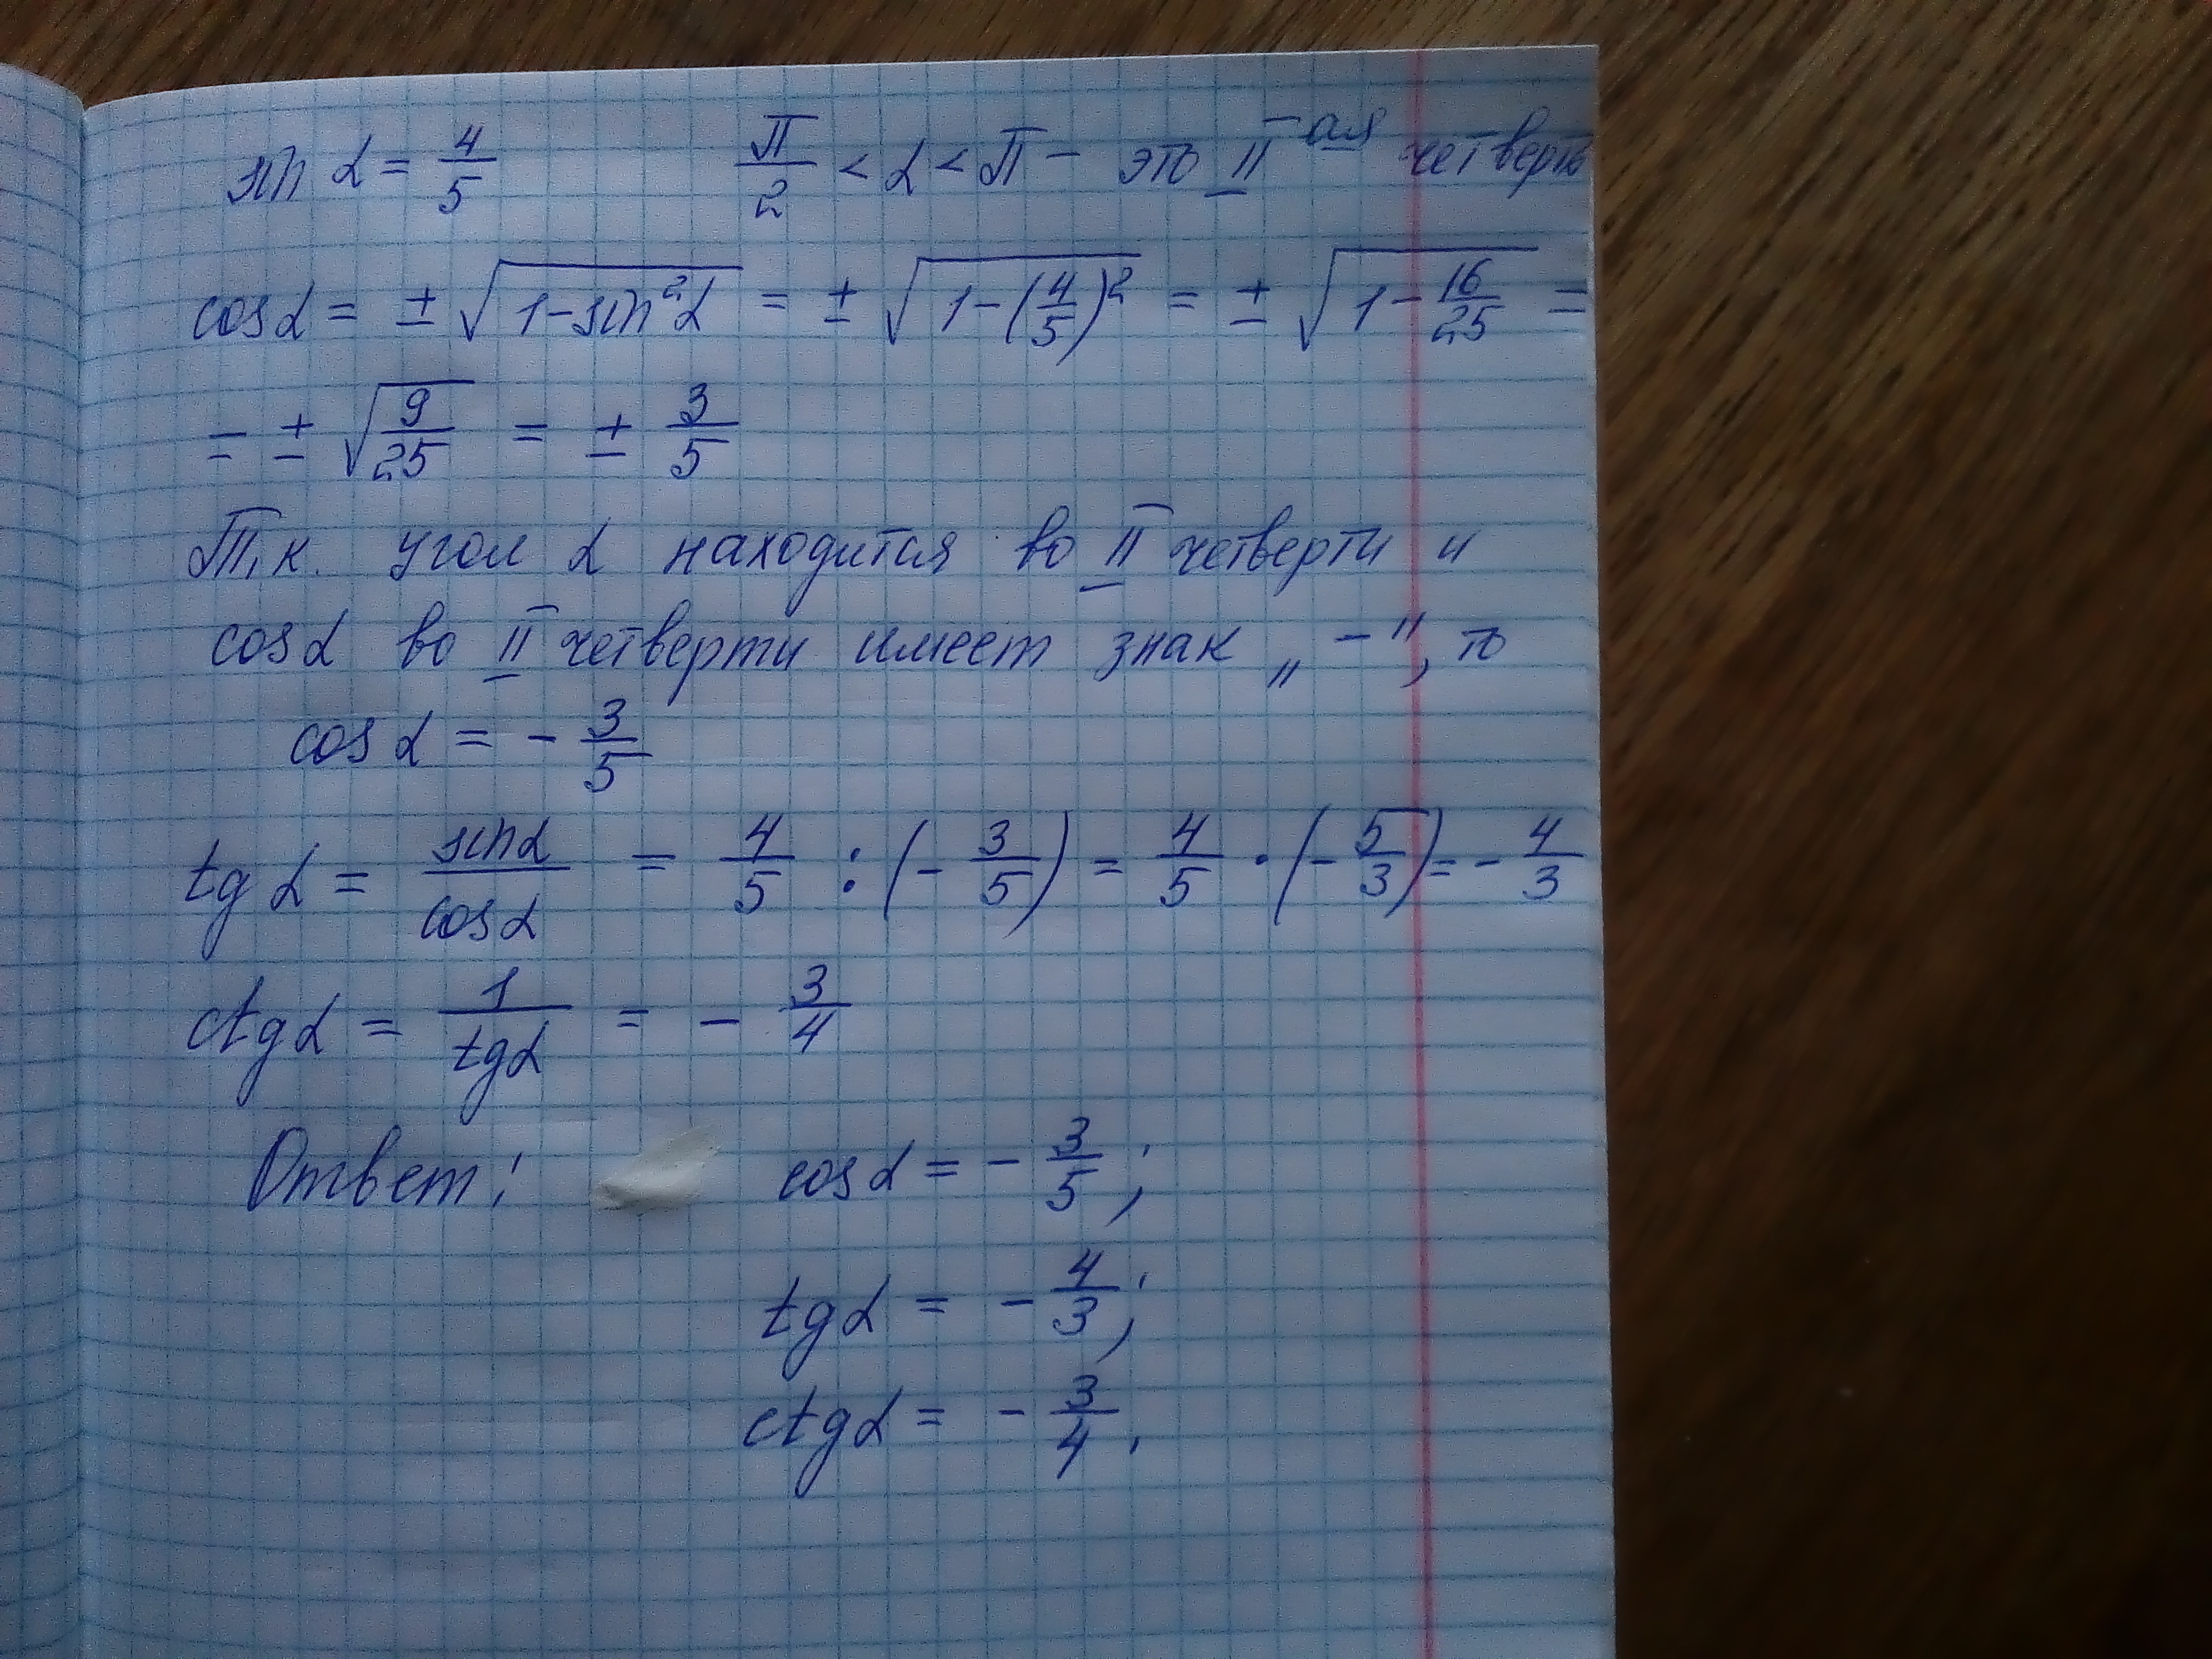 sin α = 4/5   π/2 < α < π - это II ая четверть
cos α = ± √(1 - sin²α) = ± √(1 - (4/5)²) = ± √(1 - 16/25) =
= ± √(9/25) = ± 3/5
Т.к. угол α находится во II четверти и
cos α во II четверти имеет знак „ - ", то
cos α = - 3/5
tg α = sin α / cos α = 4/5 : (- 3/5) = 4/5 · (- 5/3) = - 4/3
ctg α = 1 / tg α = - 3/4
Ответ: cos α = - 3/5 ;
tg α = - 4/3 ;
ctg α = - 3/4 .